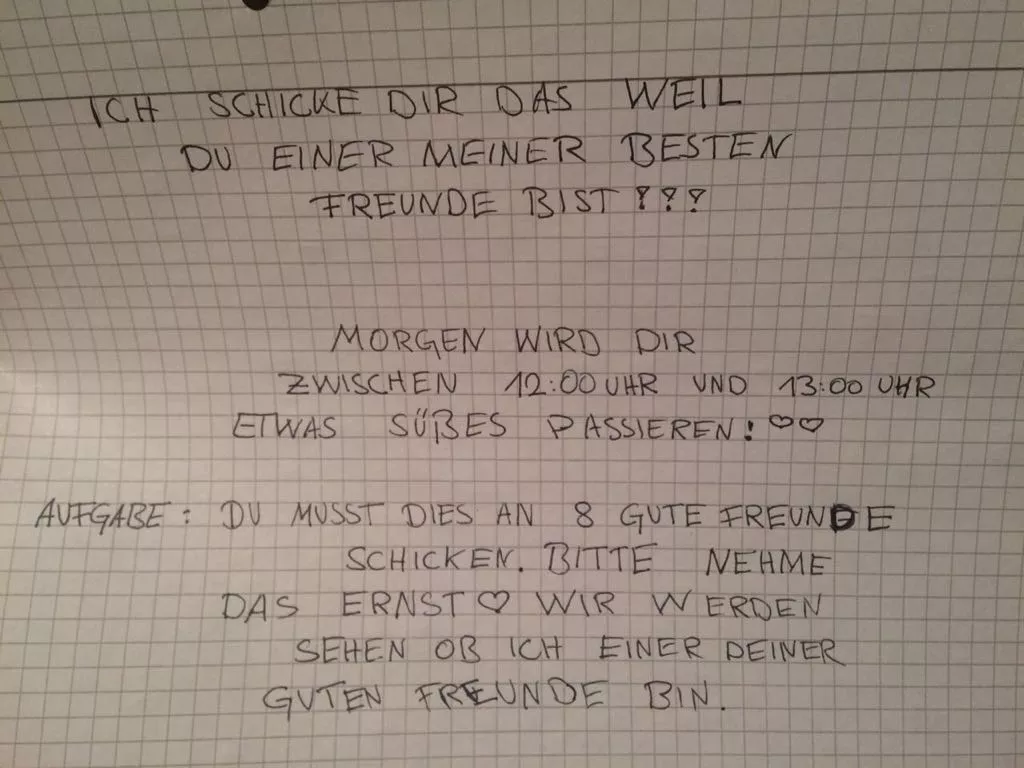 ICH SCHICKE DIR DAS WEIL
DU EINER MEINER BESTEN
FREUNDE BIST ???
MORGEN WIRD DIR
ZWISCHEN 12:00 UHR UND 13:00 UHR
ETWAS SÜßES PASSIEREN! ♡♡
AUFGABE: DU MUSST DIES AN 8 GUTE FREUNDE
SCHICKEN. BITTE NEHME
DAS ERNST ♡ WIR WERDEN
SEHEN OB ICH EINER DEINER
GUTEN FREUNDE BIN.